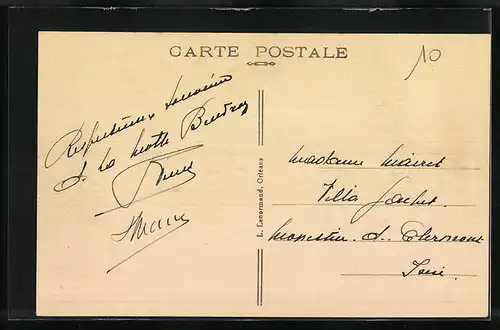 CARTE POSTALE
10
Respectueux souvenir
de La Motte Beuvron
L. Lenormand, Orléans
Madame Mairet
Villa
Monestier de Clermont
Isère